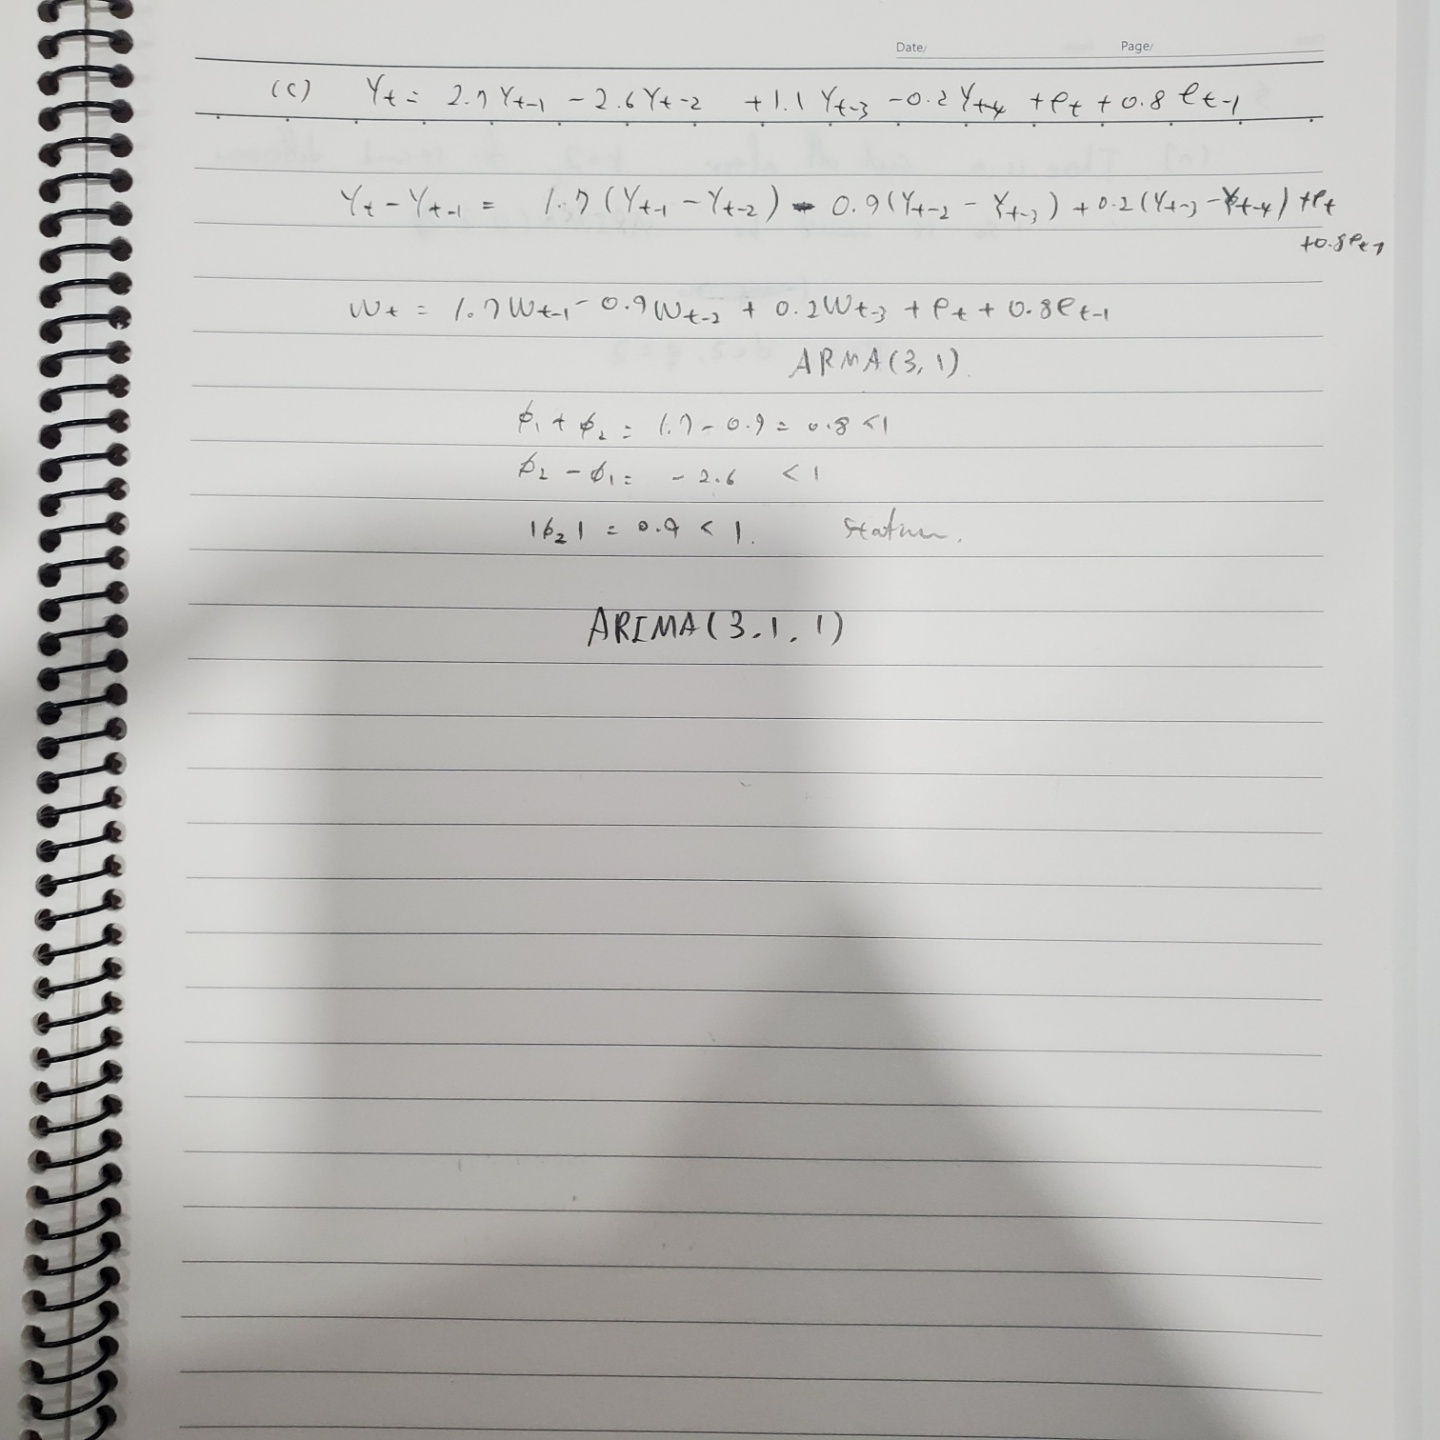 Date/ Page/
(c) Yt = 2.7Yt-1 - 2.6Yt-2 + 1.1Yt-3 - 0.2Yt-4 + et + 0.8et-1
Yt - Yt-1 = 1.7(Yt-1 - Yt-2) - 0.9(Yt-2 - Yt-3) + 0.2(Yt-3 - Yt-4) + et
+0.8et-1
Wt = 1.7Wt-1 - 0.9Wt-2 + 0.2Wt-3 + et + 0.8et-1
ARMA(3,1).
ϕ1 + ϕ2 = 1.7 - 0.9 = 0.8 < 1
ϕ2 - ϕ1 = -2.6 < 1
|ϕ2| = 0.9 < 1.
ARIMA(3.1.1)